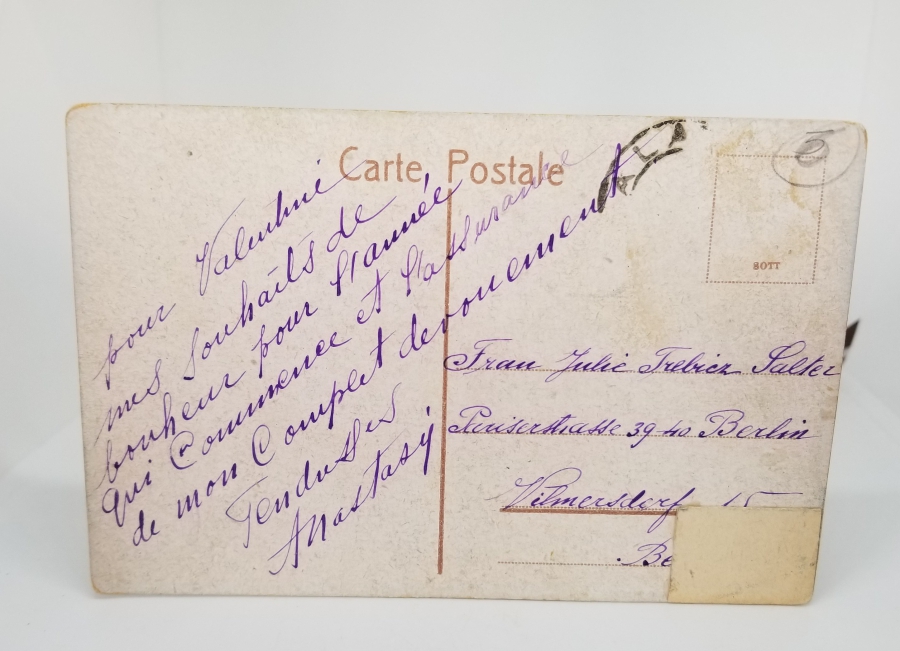 Carte Postale
pour Valentine
mes souhaits de
bonheur pour l'année
qui Commence et l'assurance
de mon Complet devouement
Anastasy
SOTT
5
Frau Julie Trebicz Salter
Pariserstrasse 39 40 Berlin
Wilmersdorf 15